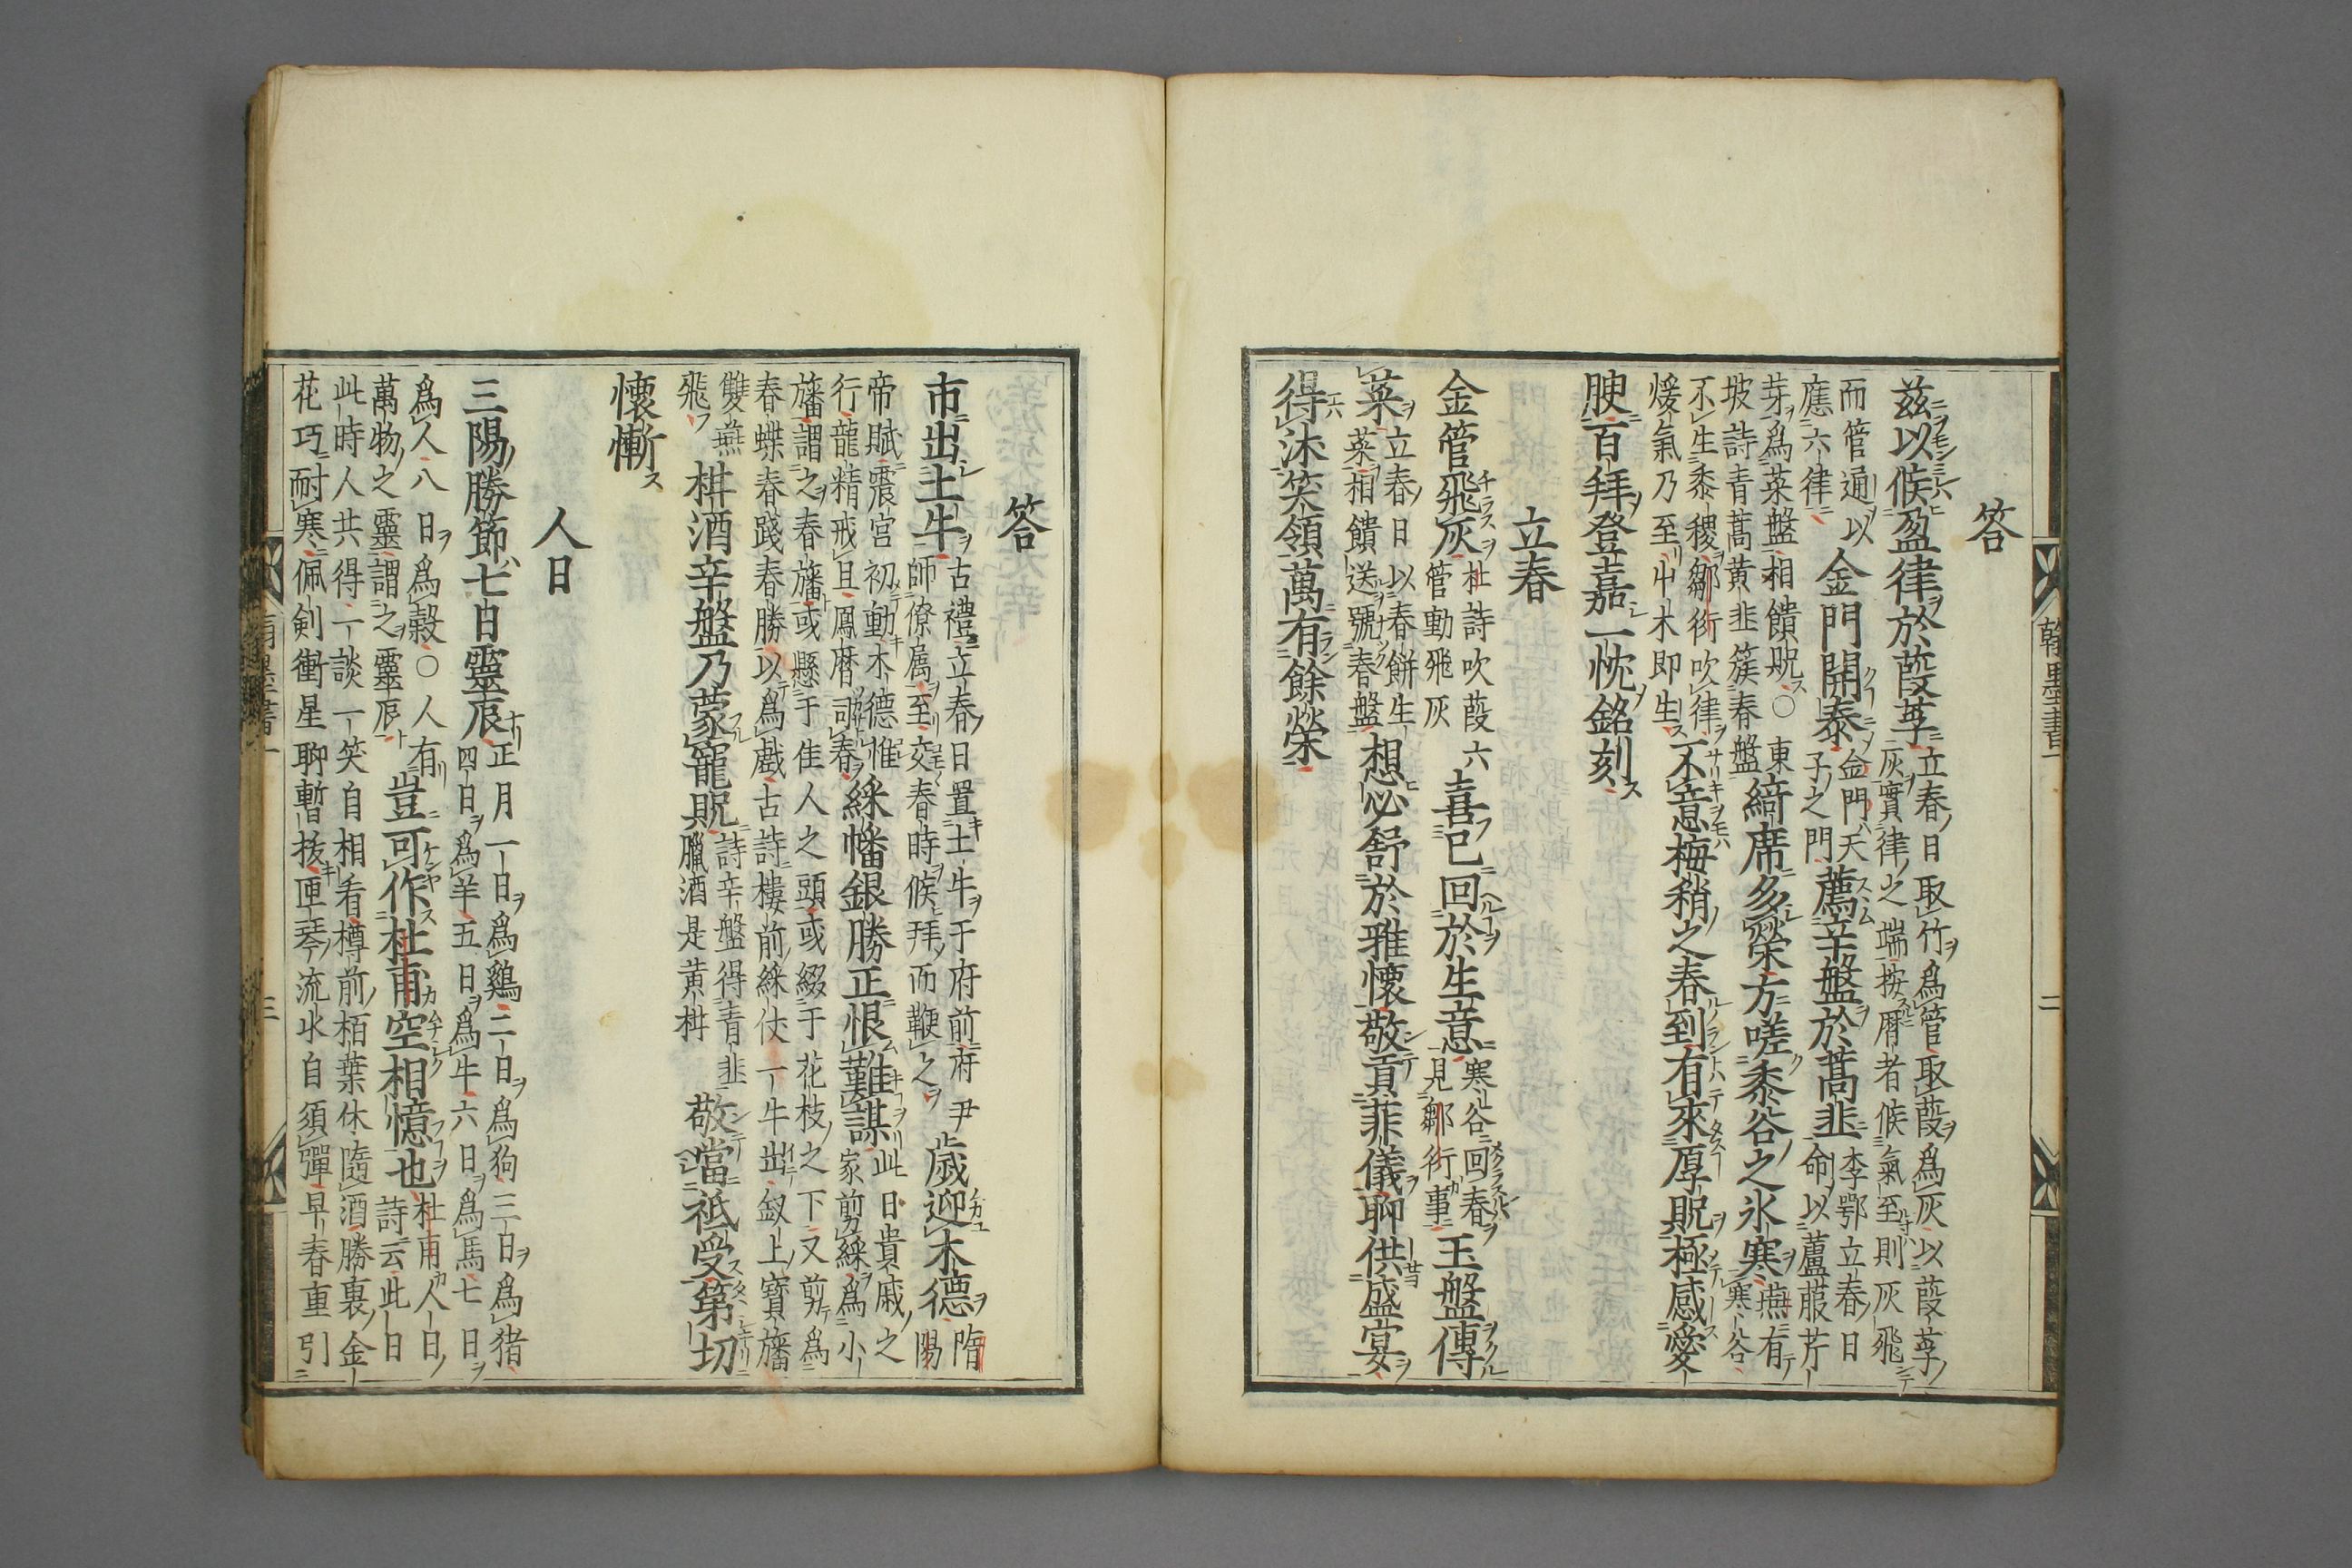 答
茲以候盈律於葭莩立春日取竹爲管取葭爲灰以葭莩灰實律之端按曆者候氣至則灰飛
而管通以應六律金門開泰金門天子之門薦辛盤於蒿韭李鄂立春日命以蘆菔芹
芽爲菜盤相饋貺○東坡詩青蒿黃韭簇春盤綺席多榮方嗟黍谷之氷寒燕有寒谷
不生黍稷鄒衍吹律煖氣乃至屮木即生不意梅稍之春到有來厚貺極感愛
腴百拜登嘉一忱銘刻
立春
金管飛灰杜詩吹葭六管動飛灰喜已回於生意寒谷回春見鄒衍事玉盤傳
菜立春日以春餅生菜相饋送號春盤想必舒於雅懷敬貢菲儀聊供盛宴
得沐笑領萬有餘榮
翰墨書一
二
答
市出土牛古禮立春日置土牛于府前府尹師僚属至交春時候拜而鞭之歲迎木德隋陽
帝賦震宮初動木德惟行龍精戒旦鳳暦司春綵幡銀勝正恨難謀此日貴戚之家剪綵爲小
旛謂之春旛或懸于佳人之頭或綴于花枝之下又剪爲春蝶春踐春勝以爲戲古詩樓前綵仗一牛出釵上寶旛
雙燕飛椒酒辛盤乃蒙寵貺詩辛盤得青韭臘酒是黄椒敬當祗受第切
懷慚
人日
三陽勝節七日靈辰正月一日爲鷄二日爲狗三日爲猪四日爲羊五日爲牛六日爲馬七日
爲人八日爲穀○人有萬物之靈謂之靈辰豈可作杜甫空相憶也杜甫人日詩云此日
此時人共得一談一笑自相看樽前栢葉休隨酒勝裏金
花巧耐寒佩剣衝星聊暫抜匣琴流水自須彈早春重引
三